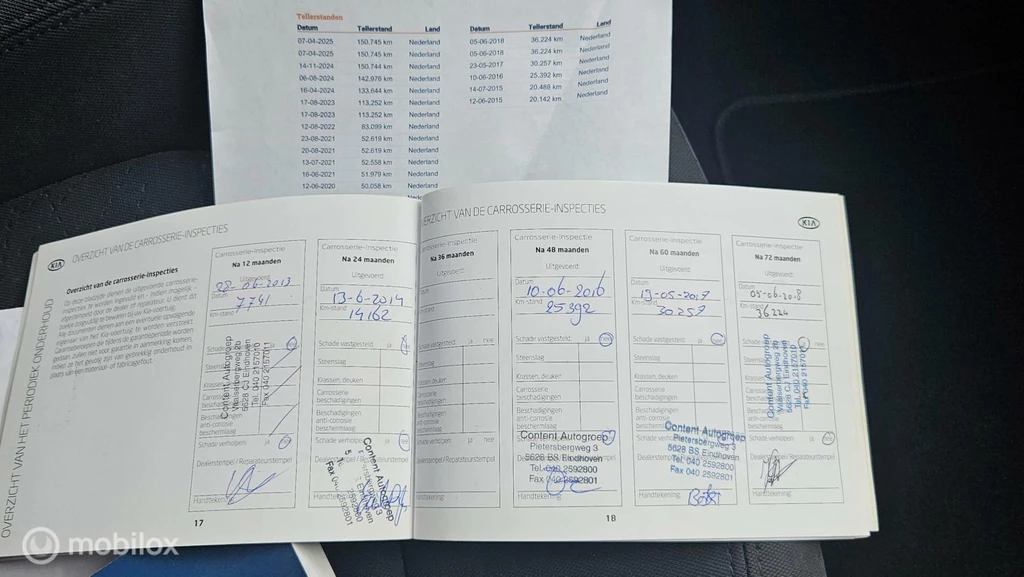 Tellerstanden
Datum Tellerstand Land
07-04-2025 150.745 km Nederland
07-04-2025 150.745 km Nederland
14-11-2024 150.744 km Nederland
06-08-2024 142.976 km Nederland
16-04-2024 133.644 km Nederland
17-08-2023 113.252 km Nederland
17-08-2023 113.252 km Nederland
12-08-2022 83.099 km Nederland
23-08-2021 52.619 km Nederland
20-08-2021 52.619 km Nederland
13-07-2021 52.558 km Nederland
16-06-2021 51.979 km Nederland
12-06-2020 50.058 km Nederland
Datum Tellerstand Land
05-06-2018 36.224 km Nederland
05-06-2018 36.224 km Nederland
23-05-2017 30.257 km Nederland
10-06-2016 25.392 km Nederland
14-07-2015 20.488 km Nederland
12-06-2015 20.142 km Nederland
OVERZICHT VAN HET PERIODIEK ONDERHOUD
KIA OVERZICHT VAN DE CARROSSERIE-INSPECTIES
Overzicht van de carrosserie-inspecties
Carrosserie-inspectie
Na 12 maanden
Uitgevoerd:
28-06-2013
Datum
7741
Km-stand
Schade
Steenslag
Krassen
Carrosserie
beschadigingen
Beschadigingen
anti-corrosie
beschermlaag
Schade verholpen: ja
Dealerstempel / Reparateurstempel
Content Autogroep
Waalserbergweg 2b
5628 CJ Eindhoven
Tel. 040 2157010
Fax 040 2157011
Handtekening:
17
Carrosserie-inspectie
Na 24 maanden
Uitgevoerd:
Datum
13-6-2014
Km-stand
14162
Schade vastgesteld: ja
Steenslag
Krassen, deuken
Carrosserie
beschadigingen
Beschadigingen
anti-corrosie
beschermlaag
Schade verholpen: ja
Dealerstempel / Reparateurstempel
Content Autogroep
Pietersbergweg 3
Eindhoven
2592800
Fax 040 2592801
Handtekening:
VERZICHT VAN DE CARROSSERIE-INSPECTIES
KIA
Carrosserie-inspectie
Na 36 maanden
Uitgevoerd:
Datum
Km-stand
Schade vastgesteld: ja nee
Steenslag
Krassen, deuken
Carrosserie
beschadigingen
Beschadigingen
anti-corrosie
beschermlaag
Schade verholpen: ja nee
Dealerstempel / Reparateurstempel
Handtekening:
Carrosserie-inspectie
Na 48 maanden
Uitgevoerd:
Datum
10-06-2016
Km-stand
25392
Schade vastgesteld: ja nee
Steenslag
Krassen, deuken
Carrosserie
beschadigingen
Beschadigingen
anti-corrosie
beschermlaag
Content Autogroep
Pietersbergweg 3
5628 BS Eindhoven
Tel. 040 2592800
Fax 040 2592801
Handtekening:
18
Carrosserie-inspectie
Na 60 maanden
Uitgevoerd:
Datum
Km-stand
30.257
Schade vastgesteld: ja nee
Steenslag
Krassen, deuken
Carrosserie
beschadigingen
Beschadigingen
anti-corrosie
beschermlaag
Content Autogroep
Pietersbergweg 3
5628 BS Eindhoven
Tel. 040 2592800
Fax 040 2592801
Handtekening:
Carrosserie-inspectie
Na 72 maanden
Uitgevoerd:
Datum
05-06-2018
Km-stand
36224
Schade
Steenslag
Krassen
Carrosserie
beschadigingen
Beschadigingen
anti-corrosie
beschermlaag
Schade verholpen: ja
Dealerstempel / Reparateurstempel
Content Autogroep
5628 CJ Eindhoven
Tel. 040 2157010
Fax 040 2157011
Handtekening:
mobilox